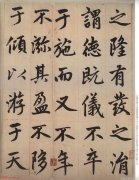 之隆有發之治
謂德既儀不卒
于施而又不年
不其盈不
于傾以游于天